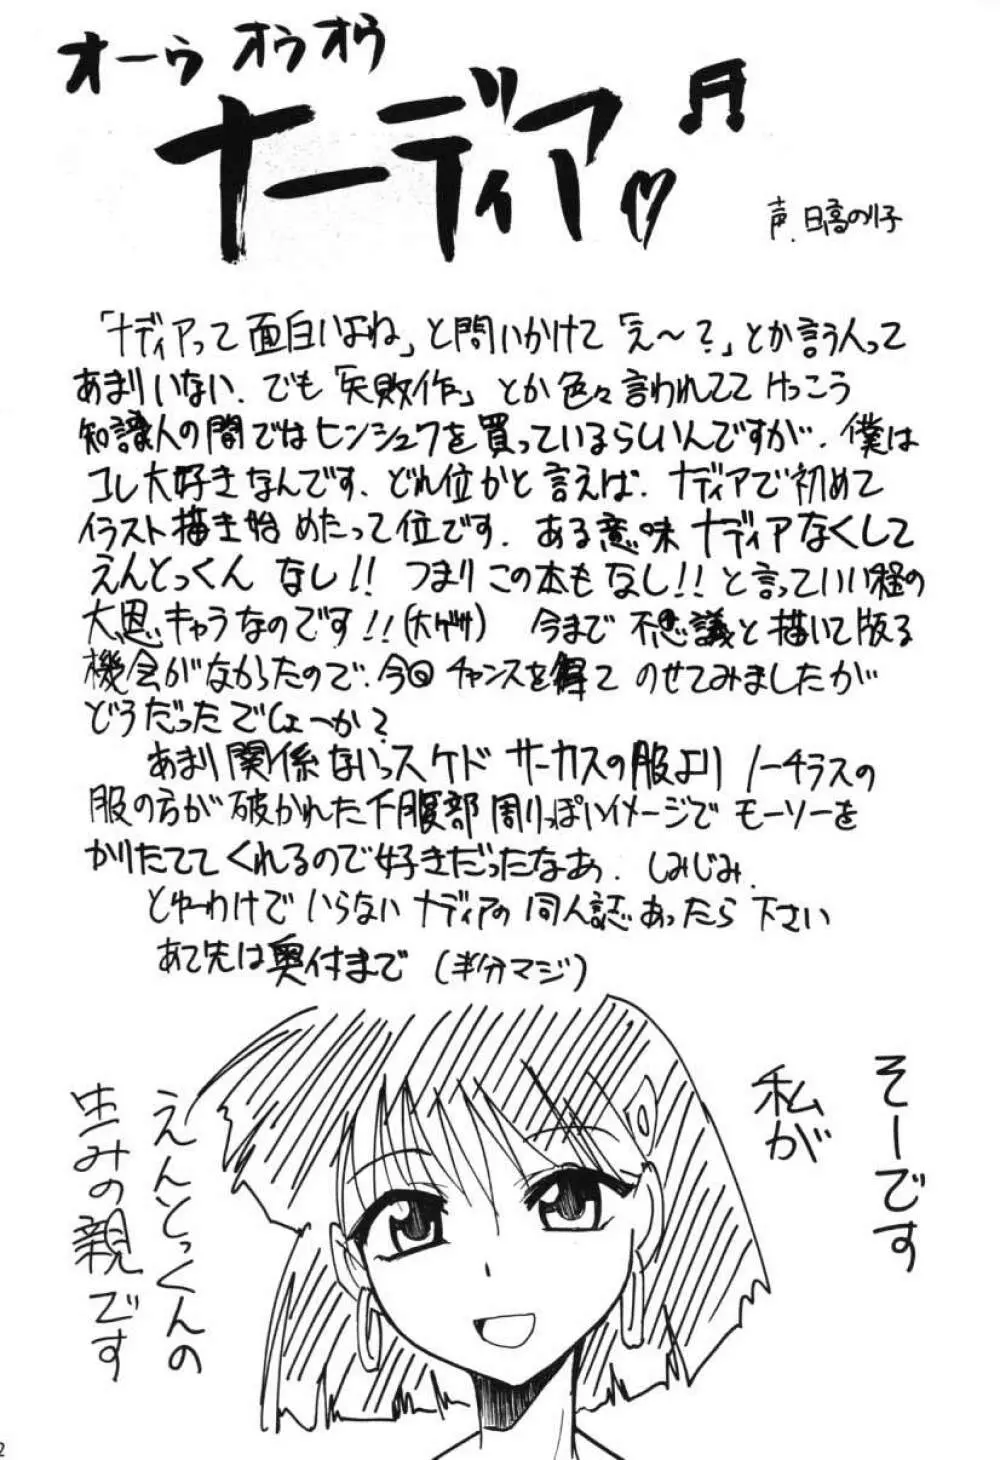 オーゥ オゥオゥ
ナーディア♡♬
声.日高のり子
「ナディアって面白いよね」と問いかけて「え〜?」とか言う人って
あまりいない.でも「失敗作」とか色々言われてて けっこう
知識人の間ではヒンシュクを買っているらしいんですが.僕は
コレ大好きなんです.どれ位かと言えば.ナディアで初めて
イラスト描き始めたって位です.ある意味ナディアなくして
えんとっくん なし!! つまりこの本もなし!!と言っていい程の
大恩キャラなのです!!(大ゲサ) 今まで不思議と描いて版る
機会がなかったので.今回チャンスを得て のせてみましたが
どうだったでしょーか?
あまり関係ないっスケド サーカスの服より ノーチラスの
服の方が破かれた下腹部周りっぽいイメージで モーソーを
かりたててくれるので好きだったなぁ.しみじみ.
とゆーわけで いらないナディアの同人誌あったら下さい
あて先は奥付まで(半分マジ)
そーです
私が
えんとっくんの
生みの親です
2